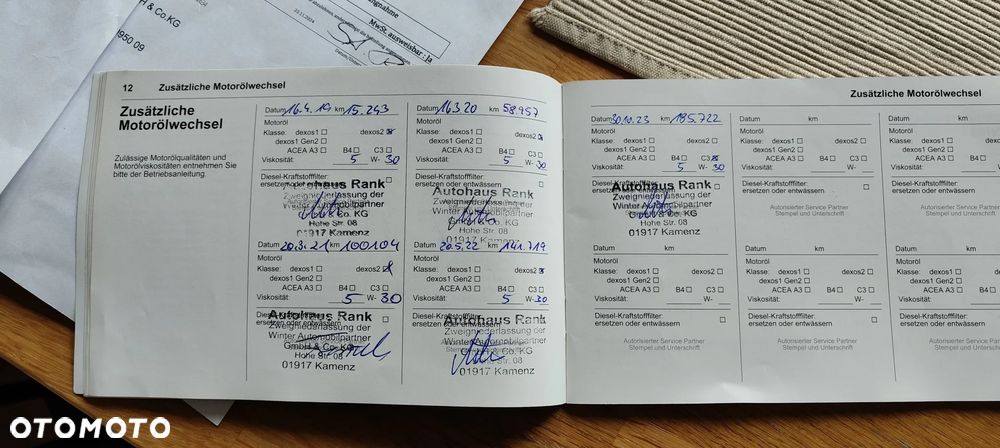 & Co.KG
22.11.2024
MwSt. ausweisbar : Ja
950 09
12 Zusätzliche Motorölwechsel
Zusätzliche
Motorölwechsel
Zulässige Motorölqualitäten und
Motorölviskositäten entnehmen Sie
bitte der Betriebsanleitung.
Datum 16.4.19 km 15.243
Motoröl
Klasse: dexos1 ☐ dexos2 ☒
dexos1 Gen2 ☐
ACEA A3 ☐ B4 ☐ C3 ☐
Viskosität: 5 W- 30
Diesel-Kraftstofffilter:
ersetzen oder entwässern ☐
Autohaus Rank
Zweigniederlassung der
Winter Automobilpartner
GmbH & Co. KG
Hohe Str. 08
01917 Kamenz
Datum 16.3.20 km 58.957
Motoröl
Klasse: dexos1 ☐ dexos2 ☒
dexos1 Gen2 ☐
ACEA A3 ☐ B4 ☐ C3 ☐
Viskosität: 5 W- 30
Diesel-Kraftstofffilter:
ersetzen oder entwässern ☐
Autohaus Rank
Zweigniederlassung der
Winter Automobilpartner
GmbH & Co. KG
Hohe Str. 08
01917 Kamenz
Datum 20.3.21 km 100104
Motoröl
Klasse: dexos1 ☐ dexos2 ☒
dexos1 Gen2 ☐
ACEA A3 ☐ B4 ☐ C3 ☐
Viskosität: 5 W- 30
Diesel-Kraftstofffilter:
ersetzen oder entwässern ☐
Autohaus Rank
Zweigniederlassung der
Winter Automobilpartner
GmbH & Co. KG
Hohe Str. 08
01917 Kamenz
Datum 20.5.22 km 141.719
Motoröl
Klasse: dexos1 ☐ dexos2 ☒
dexos1 Gen2 ☐
ACEA A3 ☐ B4 ☐ C3 ☐
Viskosität: 5 W- 30
Diesel-Kraftstofffilter:
ersetzen oder entwässern ☐
Autohaus Rank
Zweigniederlassung der
Winter Automobilpartner
GmbH & Co. KG
Hohe Str. 08
01917 Kamenz
Zusätzliche Motorölwechsel
Datum 30.10.23 km 185.722
Motoröl
Klasse: dexos1 ☐ dexos2 ☐
dexos1 Gen2 ☐
ACEA A3 ☐ B4 ☐ C3 ☒
Viskosität: 5 W- 30
Diesel-Kraftstofffilter:
ersetzen oder entwässern ☐
Autohaus Rank
Zweigniederlassung der
Winter Automobilpartner
GmbH & Co. KG
Hohe Str. 08
01917 Kamenz
Datum km
Motoröl
Klasse: dexos1 ☐ dexos2 ☐
dexos1 Gen2 ☐
ACEA A3 ☐ B4 ☐ C3 ☐
Viskosität: W-
Diesel-Kraftstofffilter:
ersetzen oder entwässern ☐
Autorisierter Service Partner
Stempel und Unterschrift
Datum km
Motoröl
Klasse: dexos1 ☐
dexos1 Gen2 ☐
ACEA A3 ☐
Viskosität:
Diesel-Kraftstofffilter:
ersetzen oder entwässern
Autorisierter Service
Stempel und Unter
Datum km
Motoröl
Klasse: dexos1 ☐ dexos2 ☐
dexos1 Gen2 ☐
ACEA A3 ☐ B4 ☐ C3 ☐
Viskosität: W-
Diesel-Kraftstofffilter:
ersetzen oder entwässern ☐
Autorisierter Service Partner
Stempel und Unterschrift
Datum km
Motoröl
Klasse: dexos1 ☐ dexos2 ☐
dexos1 Gen2 ☐
ACEA A3 ☐ B4 ☐ C3 ☐
Viskosität: W-
Diesel-Kraftstofffilter:
ersetzen oder entwässern ☐
Autorisierter Service Partner
Stempel und Unterschrift
Datum km
Motoröl
Klasse: dexos1 ☐
dexos1 Gen2 ☐
ACEA A3 ☐
Viskosität:
Diesel-Kraftstofffilter:
ersetzen oder entwässern
Autorisierter Service
Stempel und Unter
OTOMOTO